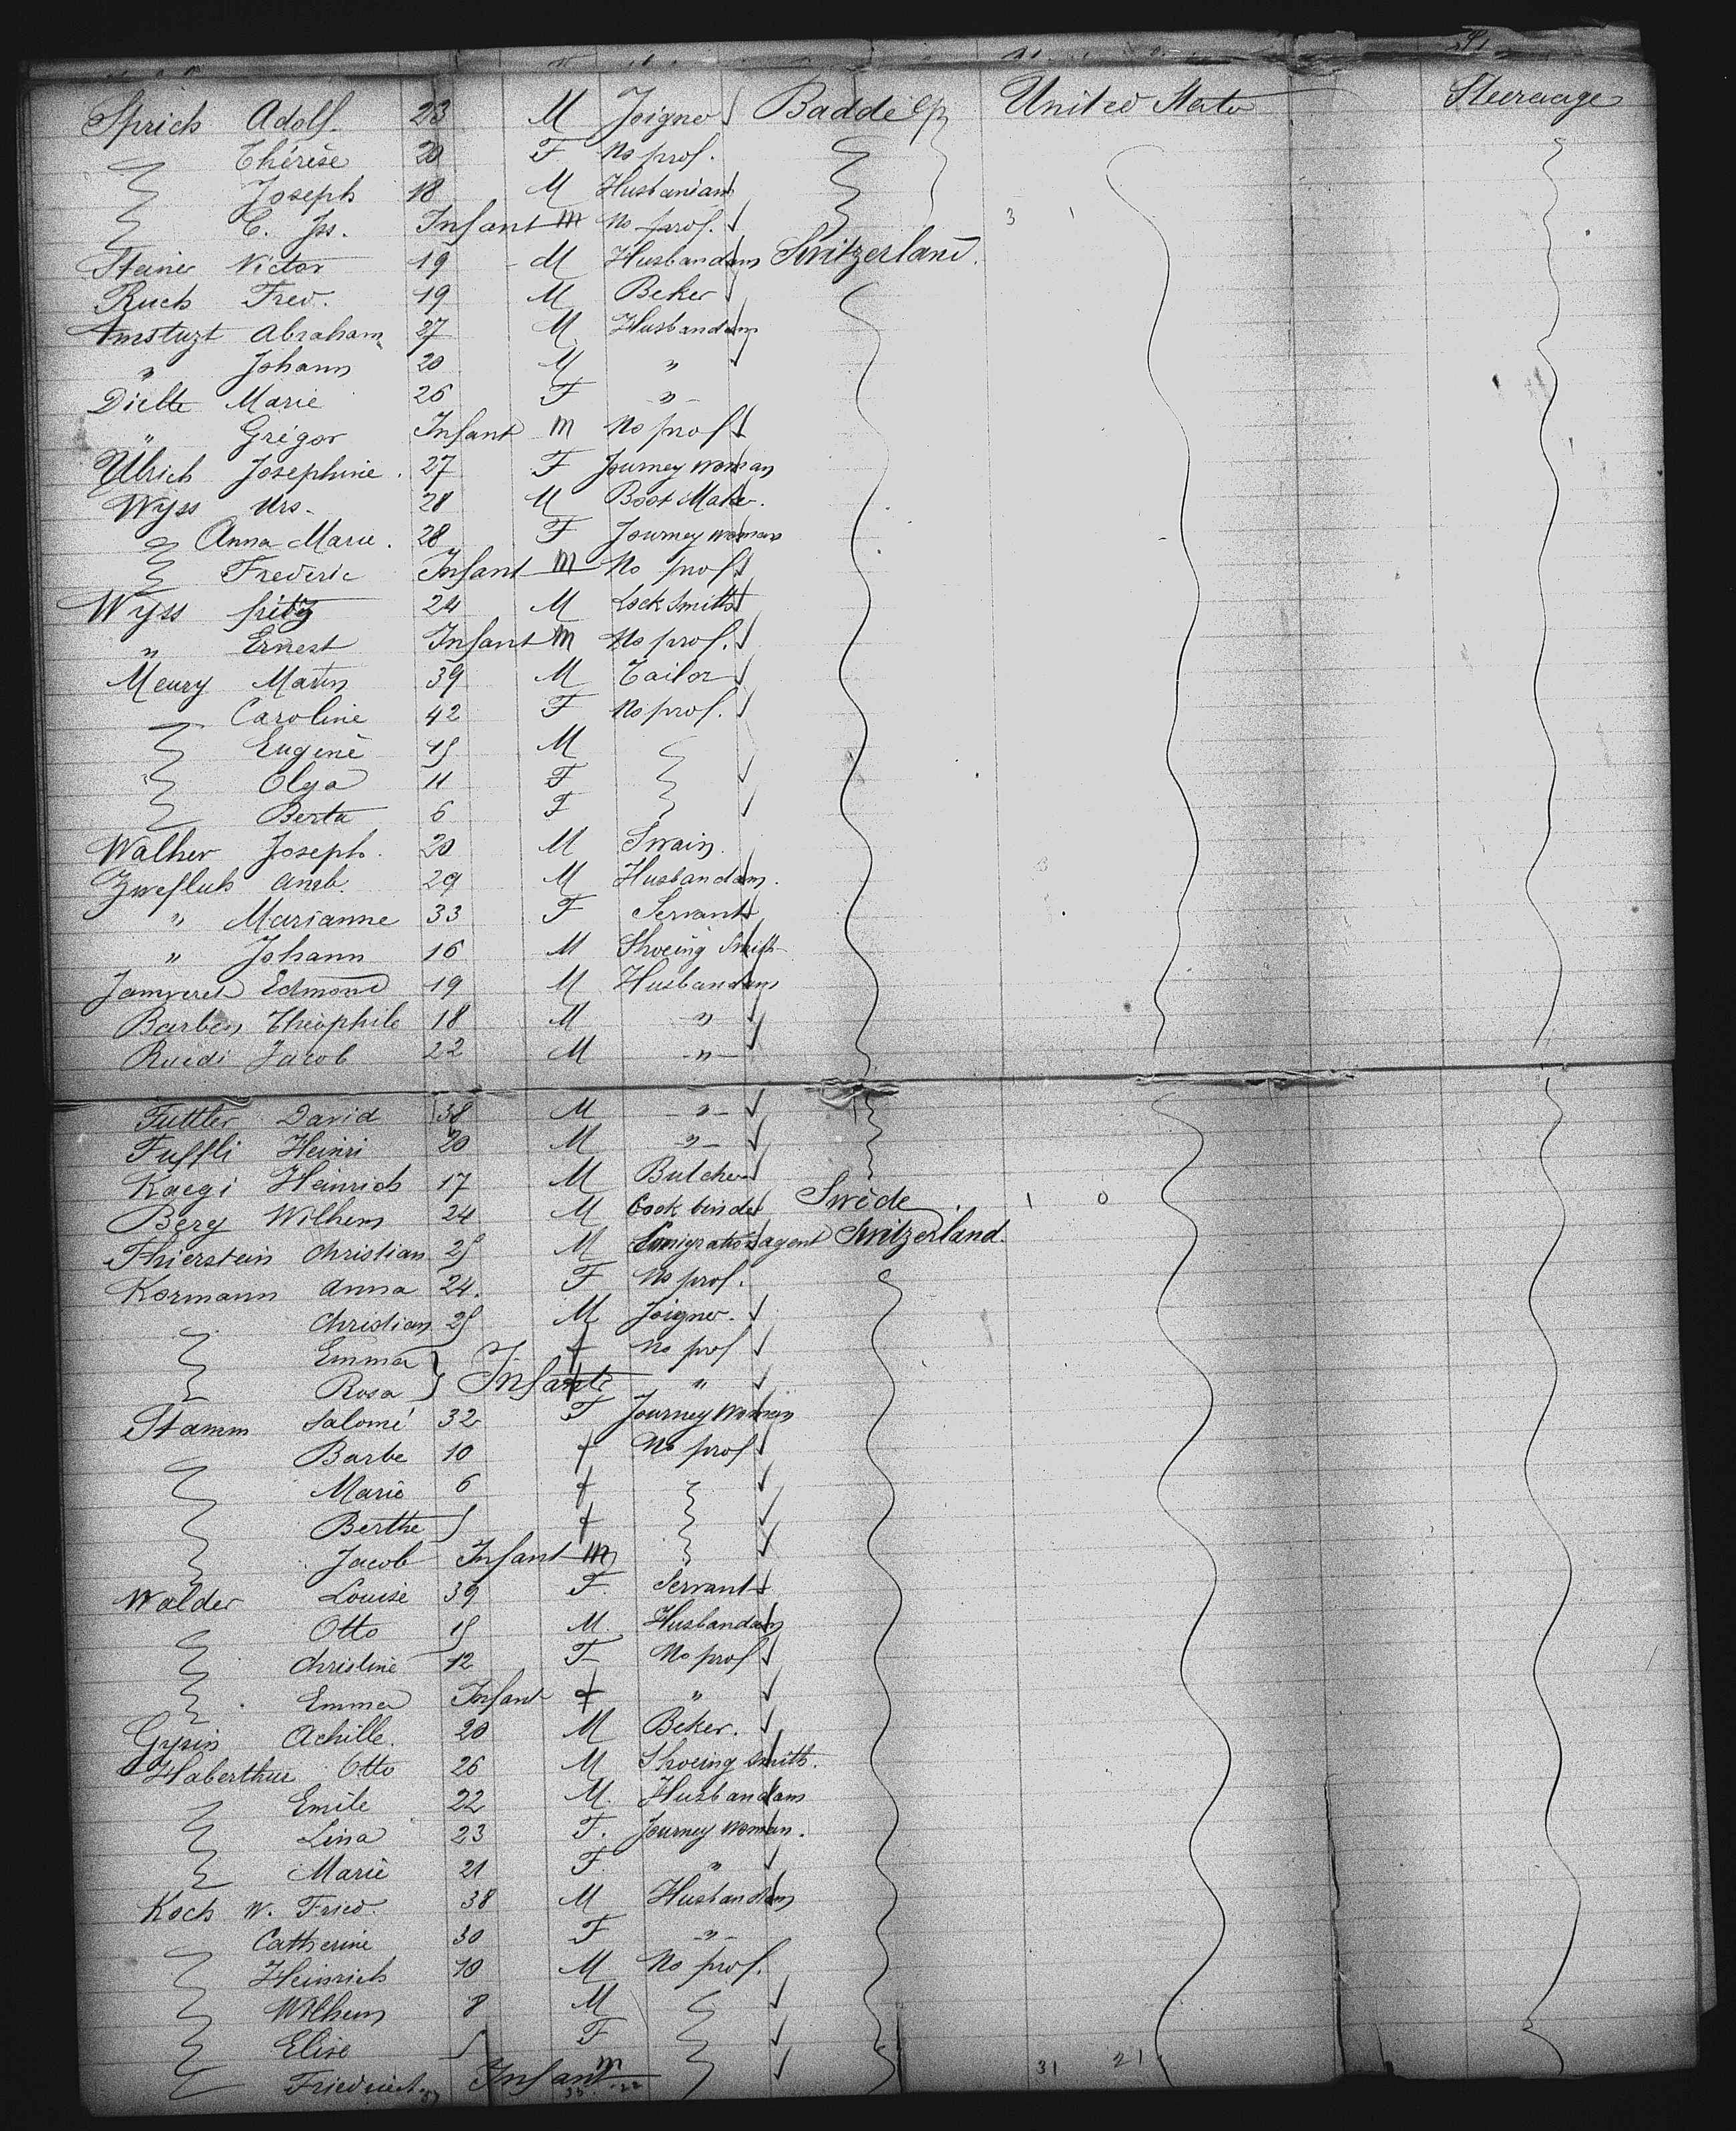 Sprich Adolf 23 M Joigner Badde United Stats Steerage
Thérèse 20 F No prof.
Joseph 18 M Husbandam
C. Jos. Infant M No prof. 3 1
Steiner Victor 19 M Husbandam Switzerland.
Ruch Fred. 19 M Beker
Amstuzt Abraham 27 M Husbandam
" Johann 20 M "
Marie 26 F "
" Grégor Infant M No prof
Ulrich Josephine. 27 F Journey woman
Wyss Urs. 28 M Boot Maker.
Anna Marie. 28 F Journey woman
Frederic Infant M No prof
Wyss fritz 24 M Lock Smith
" Ernest Infant M No prof.
Meury Martin 39 M Tailor
Caroline 42 F No prof.
Eugene 15 M
Olga 11 F
Berta 6 F
Walher Joseph. 20 M Swain.
Zwefluh Amb 29 M Husbandam.
" Marianne 33 F Servant
" Johann 16 M Shoeing Smith
Edmond 19 M Husbandam
Barben Théophile 18 M "
Ruedi Jacob 22 M "
Futtler David 38 M "
Fuffli Heinri 20 M "
Kaegi Heinrich 17 M Butcher
Berg Wilhem 24 M Book binder Swede 1 0
Thierstein Christian 25 M Emigration agent Switzerland.
Kormann Anna 24. F No prof.
Christian 25 M Joigner.
Emma f No prof
Rosa Infants f "
Stamm Salomé 32 F Journey Woman
Barbe 10 f No prof
Marie 6 f
Berthe 5 f
Jacob Infant M
Walder Louise 39 F. Servant
Otto 15 M. Husbandam
Christine 12 F No prof
Emma Infant f "
Gysin Achille. 20 M Beker.
Haberthur Otto 26 M Shoeing Smith.
Emile 22 M. Husbandam
Lina 23 F. Journey woman.
Marie 21 F. "
Koch W. Fried. 38 M Husbandam
Catherine 30 F "
Heinrich 10 M No prof.
Wilhem 8 M
Elise 5 F
Friedrich Infant M 31 21